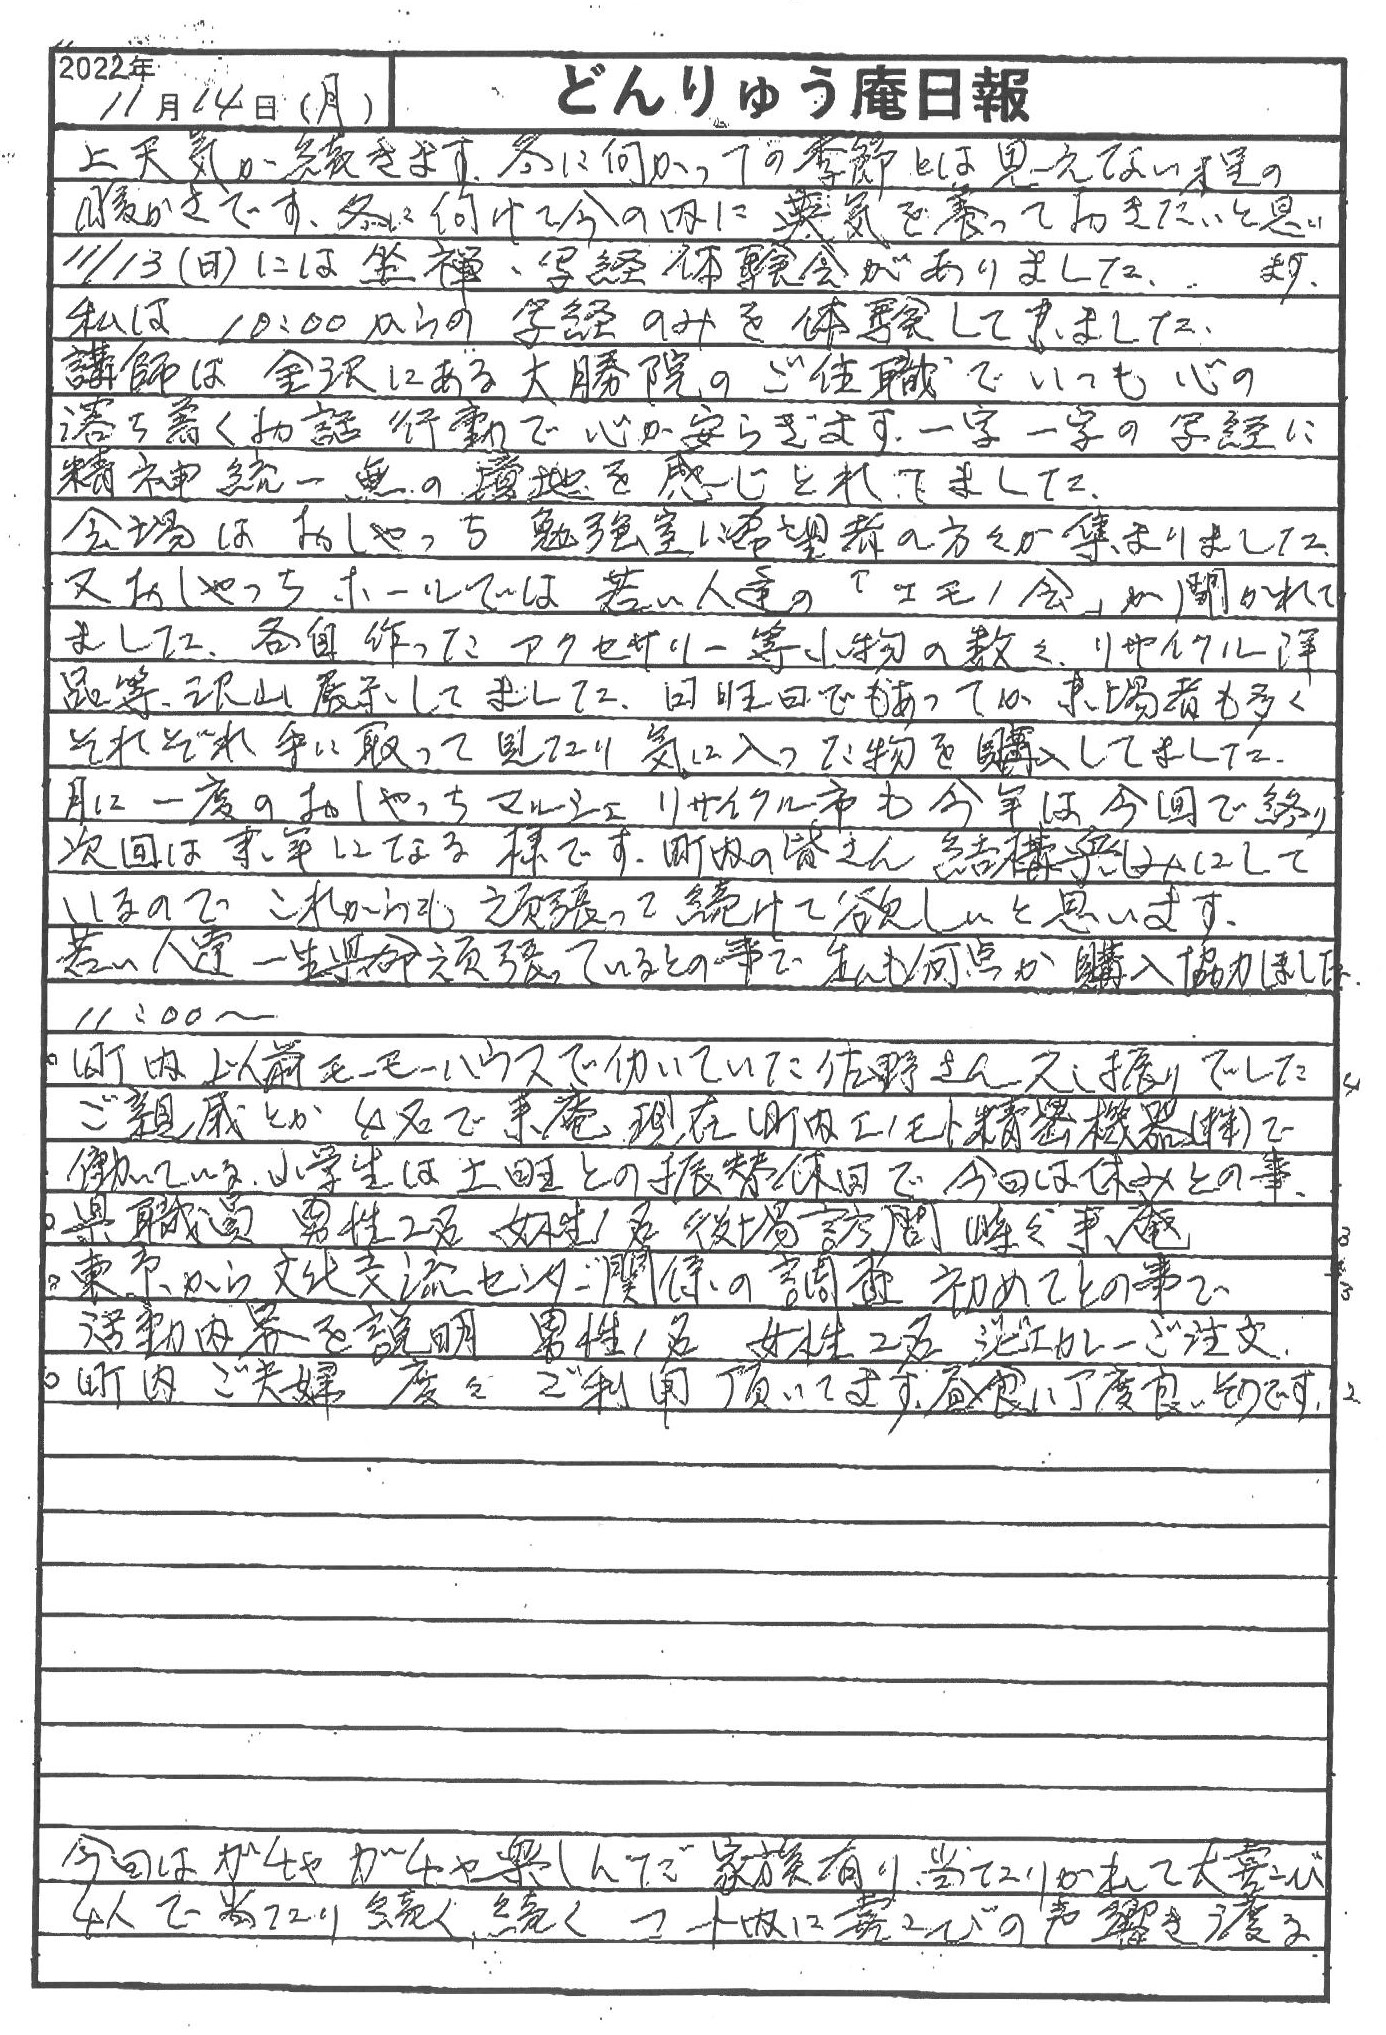 2022年
11月14日(月)
どんりゅう庵日報
上天気が続きます、冬に向かっての季節とは見えてない程の
暖かさです、冬に向けて今の内に英気を養っておきたいと思い
11/13(日)には坐禅、写経体験会がありました、 ます、
私は 10:00からの 写経のみを体験して来ました、
講師は 金沢にある大勝院のご住職でいつも心の
落ち着くお話 行動で心が安らぎます、一字一字の写経に
精神統一無の境地を感じとれてました、
会場は おしゃっち 勉強室に希望者の方々が集まりました、
又おしゃっちホールでは 若い人達の「エモノ会」が開かれて
ました、各自作ったアクセサリー等小物の数々、リサイクル洋
品等、沢山展示してました、日曜日でもあってか来場者も多く
それぞれ手に取って見たり気に入った物を購入してました、
月に一度のおしゃっちマルシェリサイクル市も今年は今回で終り
次回は来年になる様です、町内の皆さん結構楽しみにして
いるので これからも頑張って続けて欲しいと思います、
若い人達一生懸命頑張っているとの事で 私も何点か購入協力しました、
11:00〜
○町内 以前モーモーハウスで働いていた佐野さん 久し振りでした 4
ご親戚とか 4名で来庵、現在町内エノモト精密機器(株)で
働いている、小学生は土曜との振替休日で今日は休みとの事、
○県職員 男性2名 女性1名 役場訪問 時々来庵 3
○東京から文化交流センター関係の調査 初めてとの事で 3
活動内容を説明 男性1名 女性2名 ジビエカレーご注文、
○町内 ご夫婦 度々ご利用頂いてます、昼食に丁度良いそうです、 2
今日はガチャガチャ楽しんだご家族有り、当たりがれて大喜び
4人で当たり続く、続く マート内に喜こびの声響き渡る